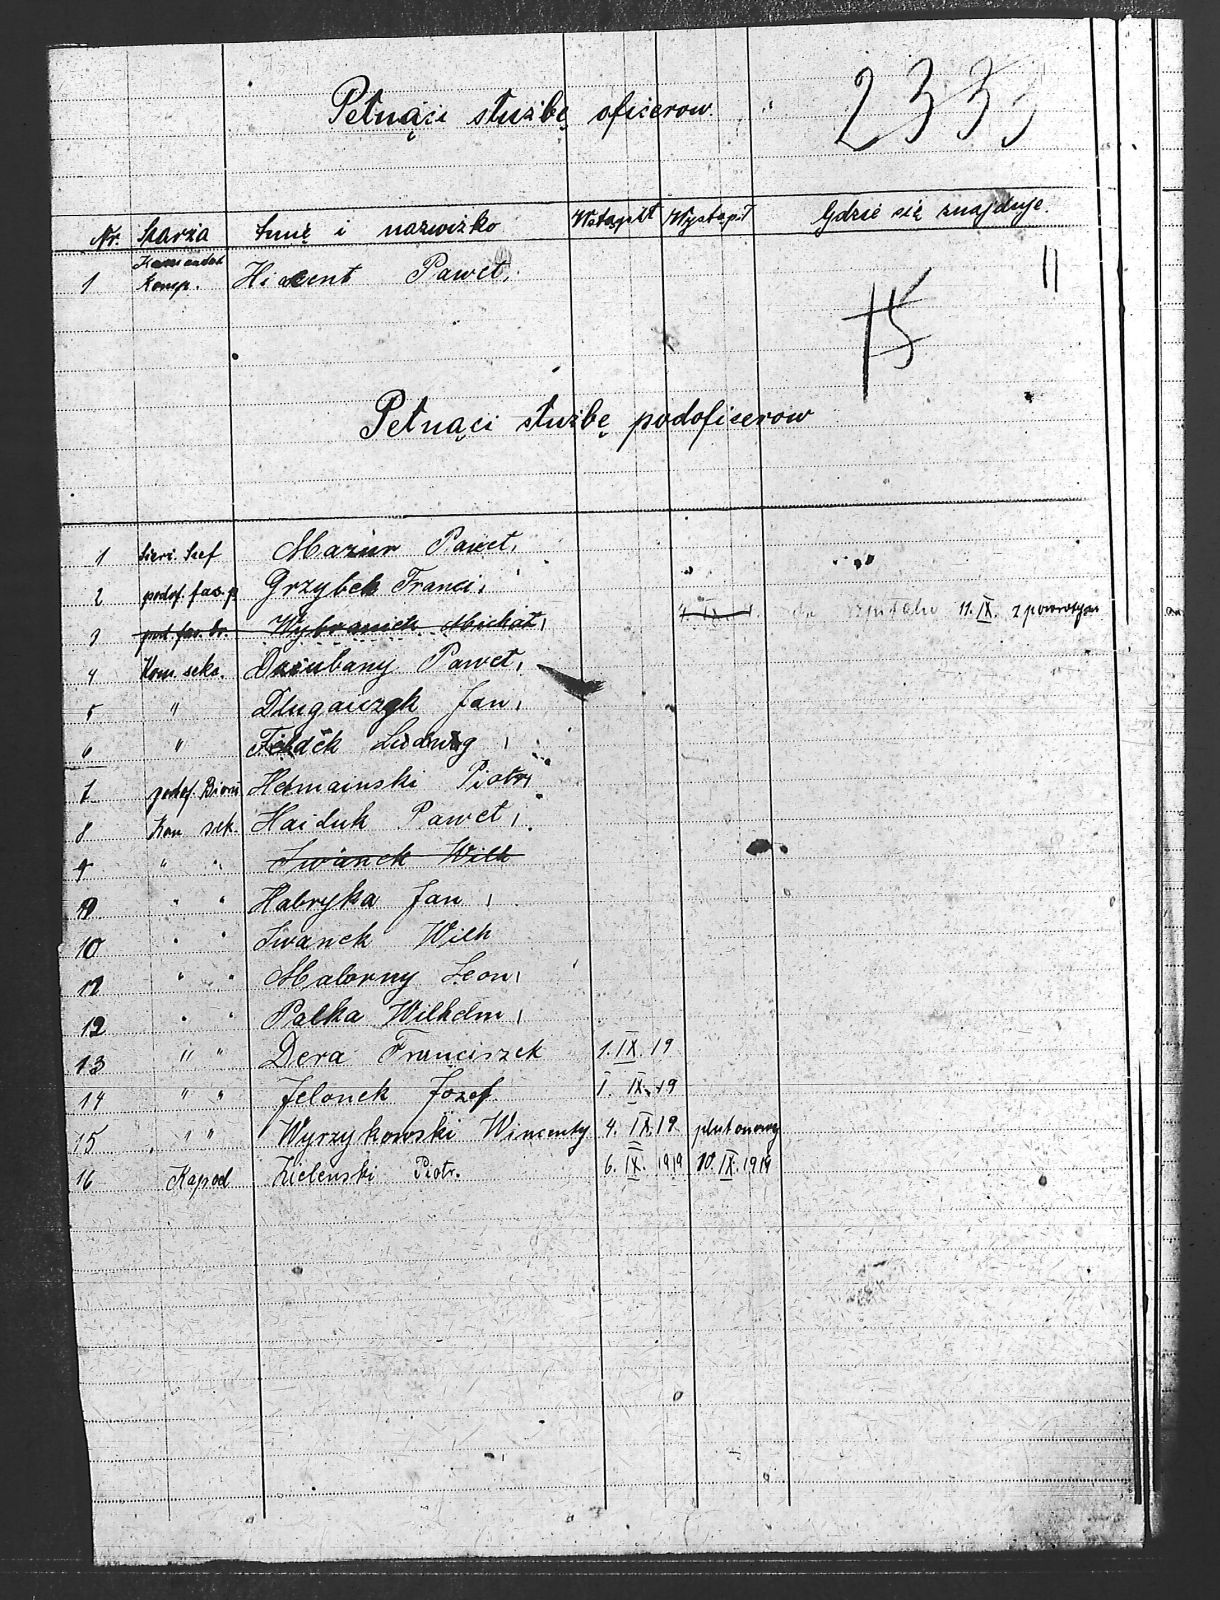 Pełnąci służbę oficerow. 2333
Nr. Szarża Imię i nazwizko Wstąpił Wystąpił Gdzie się znajduje.
1 Komendant Komp. Hiacent Paweł, 11
15
Pełnąci służbę podoficerow
1 Sierż. Szef Mazur Paweł,
2 podof. fas. p. Grzybek Franci,
3 pod. fas. br. Wybraniek Michał, do szpitalu 11. IX. z powrotym
4 Kom. seks. Dziubany Paweł,
5 " Długaiczyk Jan,
6 " Ludwig,
7 podof. Biora Hetmainski Piotr,
8 Kom sek. Haiduk Paweł,
9 " " Iwanek Wilh
9 " " Habryka Jan,
10 " " Iwanek Wilh
11 " " Malorny Leon,
12 " " Palka Wilhelm,
13 " " Dera Franciszek 1. IX. 19
14 " " Jelonek Jozef 1. IX. 19
15 " " Wyrzykowski Wincenty 4. IX. 19 plutonowy
16 Kapod Zielenski Piotr. 6. IX. 1919 10. IX. 1919